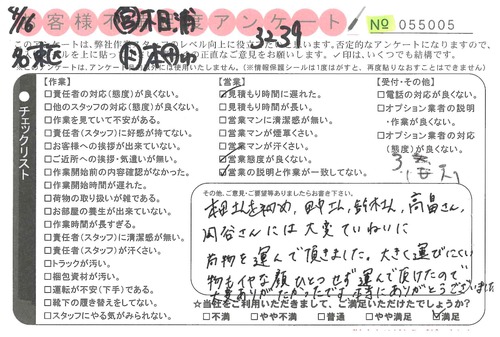 8/16
お客様不満足度アンケート
№ 055005
3239
このアンケートは、弊社作
否定的なアンケートになりますので、
ご意見をお願いします。✓印は、いくつでも結構です。
(※情報保護シールは1度はがすと、再度貼りなおすことはできません)
チェックリスト
【作業】
□責任者の対応(態度)が良くない。
□他のスタッフの対応(態度)が良くない。
□作業を見ていて不安がある。
□責任者(スタッフ)に好感が持てない。
□お客様への挨拶が出来ていない。
□ご近所への挨拶・気遣いが無い。
□作業開始前の内容確認がなかった。
□作業開始時間が遅れた。
□荷物の取り扱いが雑である。
□お部屋の養生が出来ていない。
□作業時間が長すぎる。
□責任者(スタッフ)に清潔感が無い。
□責任者(スタッフ)が汗くさい。
□トラックが汚い。
□梱包資材が汚い。
□運転が不安(下手)である。
□靴下の履き替えをしてない。
□スタッフにやる気がみられない。
【営業】
☑見積もり時間に遅れた。
□見積もり時間が長い。
□営業マンに清潔感が無い。
□営業マンが煙草くさい。
□営業マンが汗くさい。
☑営業態度が良くない。
☑営業の説明と作業が一致してない。
【受付・その他】
□電話の対応が良くない。
□オプション業者の説明
・作業が良くない。
□オプション業者の対応
(態度)が良くない。
その他、ご意見・ご要望等ありましたらお書き下さい。
本田さんを始め、田中さん、鈴木さん、高畠さん、
岡谷さんには大変ていねいに
荷物を運んで頂きました。大きく運びにくい
物もイヤな顔ひとつせず運んで頂けたので
大変ありがたかったです。本当にありがとうございました
☆当社をご利用いただきまして、ご満足いただけたでしょうか?
□不満 □やや不満 □普通 □やや満足 ☑満足